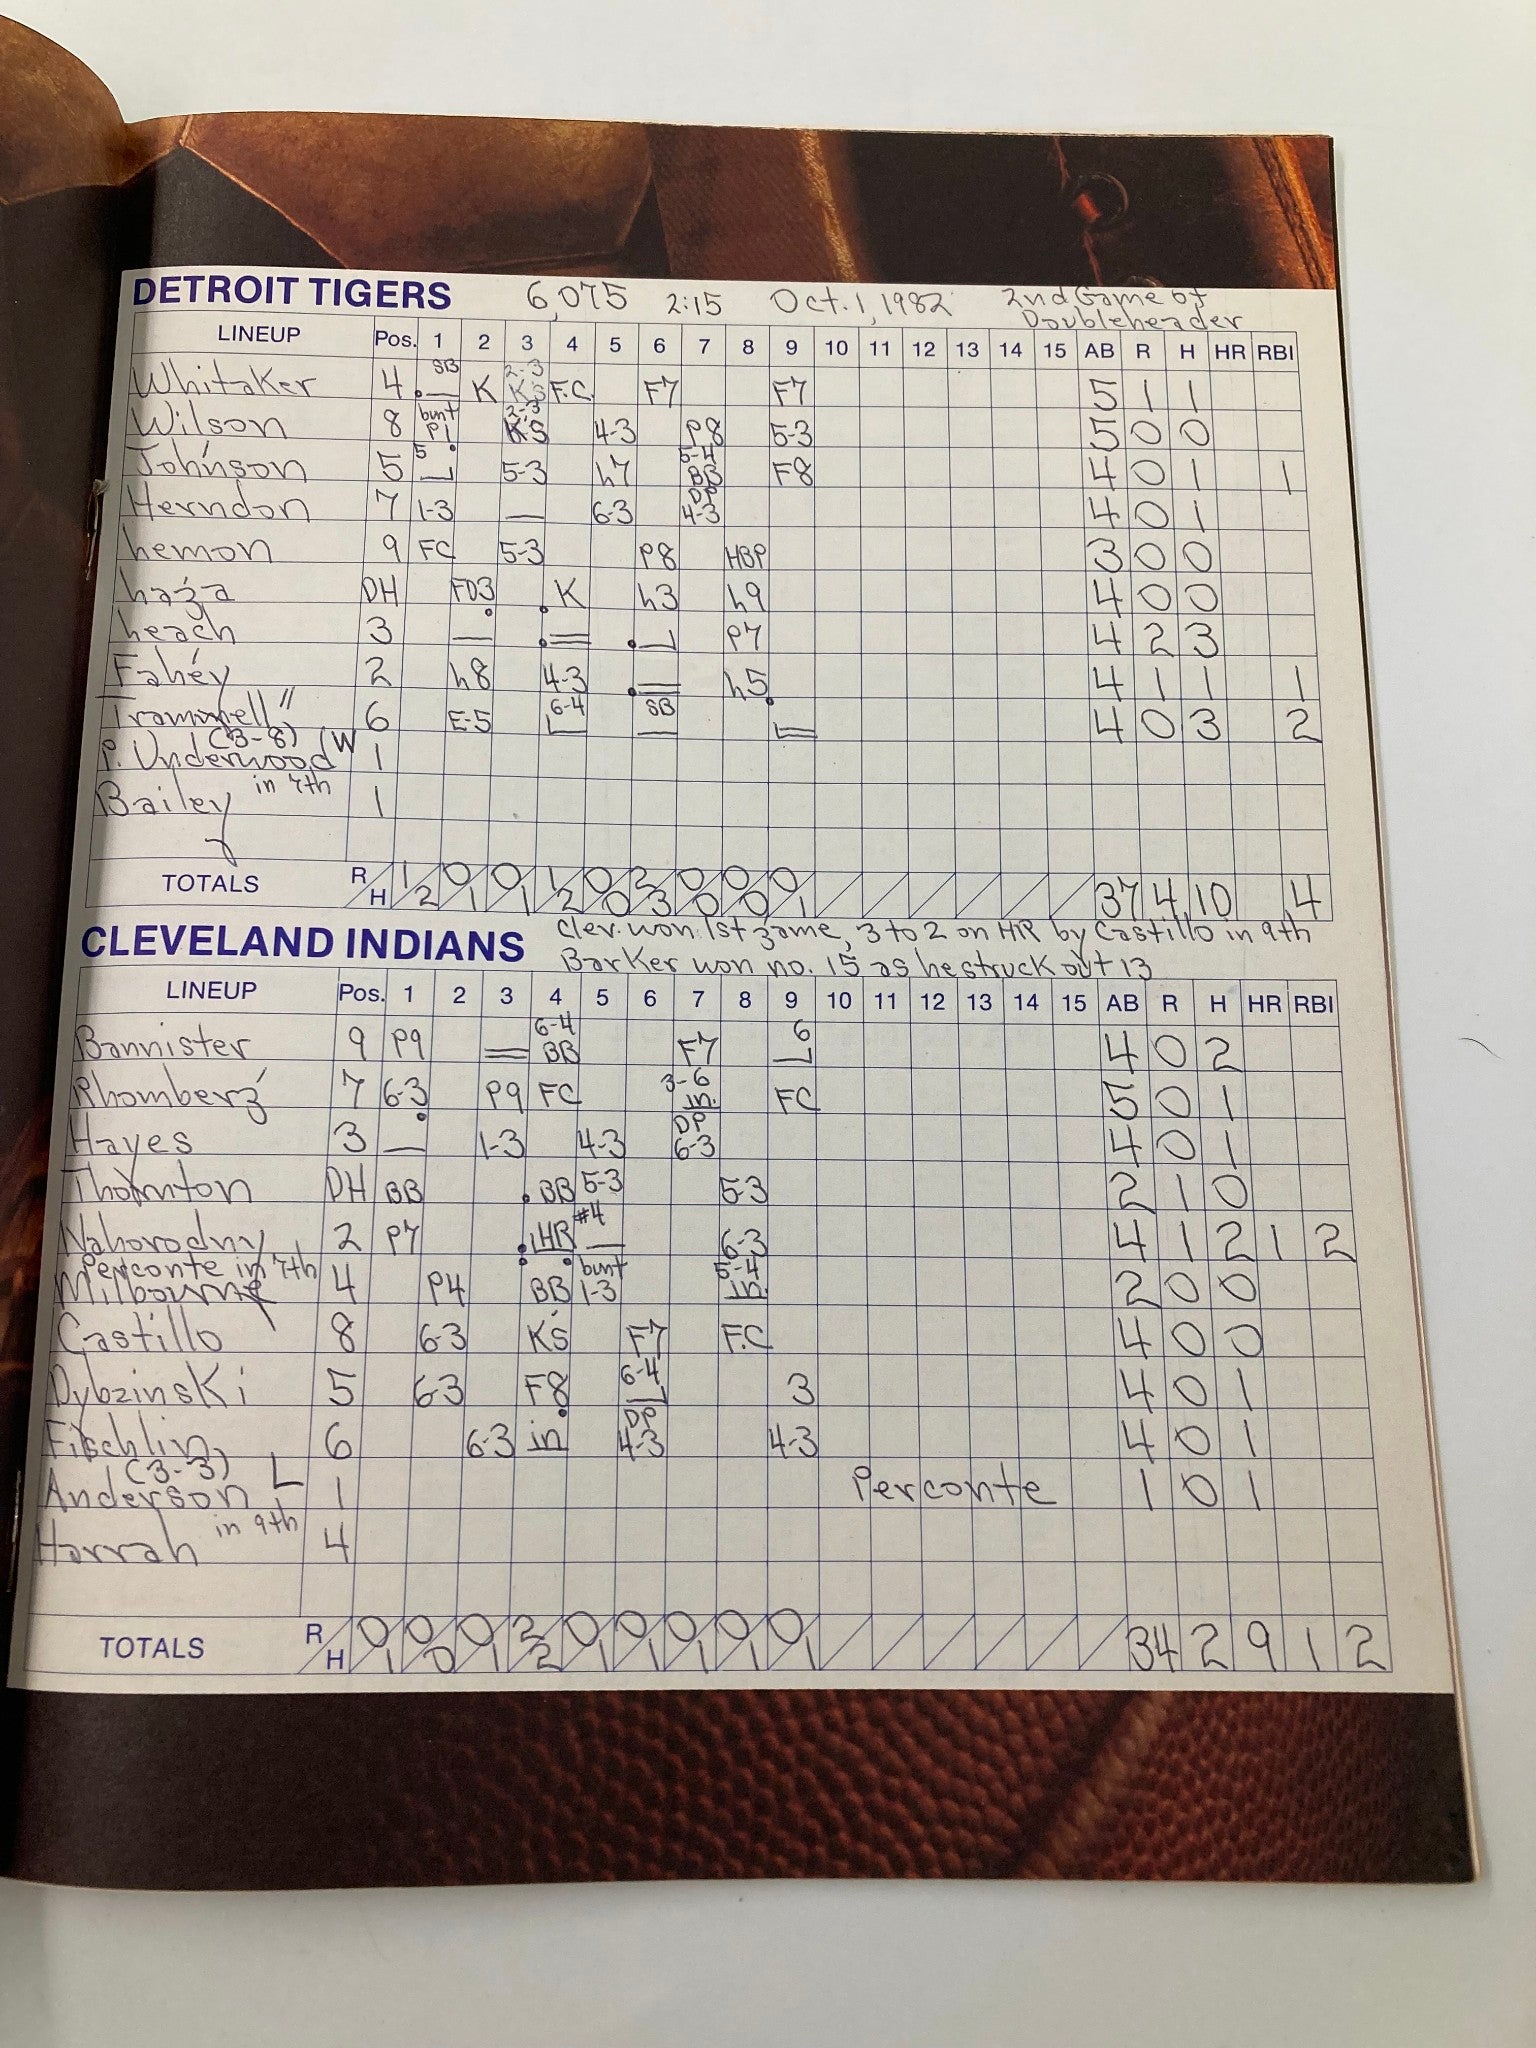 DETROIT TIGERS 6,075 2:15 Oct. 1, 1982 2nd Game of
Doubleheader
LINEUP Pos. 1 2 3 4 5 6 7 8 9 10 11 12 13 14 15 AB R H HR RBI
SB 2-3
Whitaker 4 K KS F.C. F7 F7 5 1 1
bunt 2-3
Wilson 8 P1 KS 4-3 P8 5-3 5 0 0
5 5-4
Johnson 5 5-3 L7 BB F8 4 0 1 1
DP
Herndon 7 1-3 6-3 4-3 4 0 1
Lemon 9 FC 5-3 P8 HBP 3 0 0
Laga DH FO3 K L3 L9 4 0 0
Leach 3 P7 4 2 3
Fahey 2 L8 4-3 L5 4 1 1 1
6-4 SB
Trammell 6 E-5 4 0 3 2
(3-8) (W
P. Underwood 1
in 7th
Bailey 1
TOTALS R/H 1/2 0/1 0/1 1/2 0/0 2/3 0/0 0/0 0/1 37 4 10 4
CLEVELAND INDIANS Clev. won 1st game, 3 to 2 on HR by Castillo in 9th
Barker won no. 15 as he struck out 13
LINEUP Pos. 1 2 3 4 5 6 7 8 9 10 11 12 13 14 15 AB R H HR RBI
6-4 6
Bannister 9 P9 BB F7 4 0 2
3-6
Rhomberg 7 6-3 P9 FC in. FC 5 0 1
DP
Hayes 3 1-3 4-3 6-3 4 0 1
Thornton DH BB BB 5-3 5-3 2 1 0
#4
Nahorodny 2 P7 HR 6-3 4 1 2 1 2
Perconte in 7th bunt 5-4
Milbourne 4 P4 BB 1-3 in. 2 0 0
Castillo 8 6-3 KS F7 F.C 4 0 0
6-4
Dybzinski 5 6-3 F8 3 4 0 1
DP
Fischlin 6 6-3 in 4-3 4-3 4 0 1
(3-3) L
Anderson 1 Perconte 1 0 1
in 9th
Harrah 4
TOTALS R/H 0/1 0/0 0/1 2/2 0/1 0/1 0/1 0/1 0/1 34 2 9 1 2